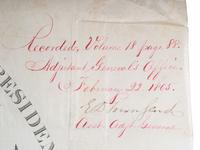 Recorded, Volume 18 page 88.
Adjutant General's Office
February 22. 1865.
E D Townsend
Asst. Adjt. General
PRESIDEN